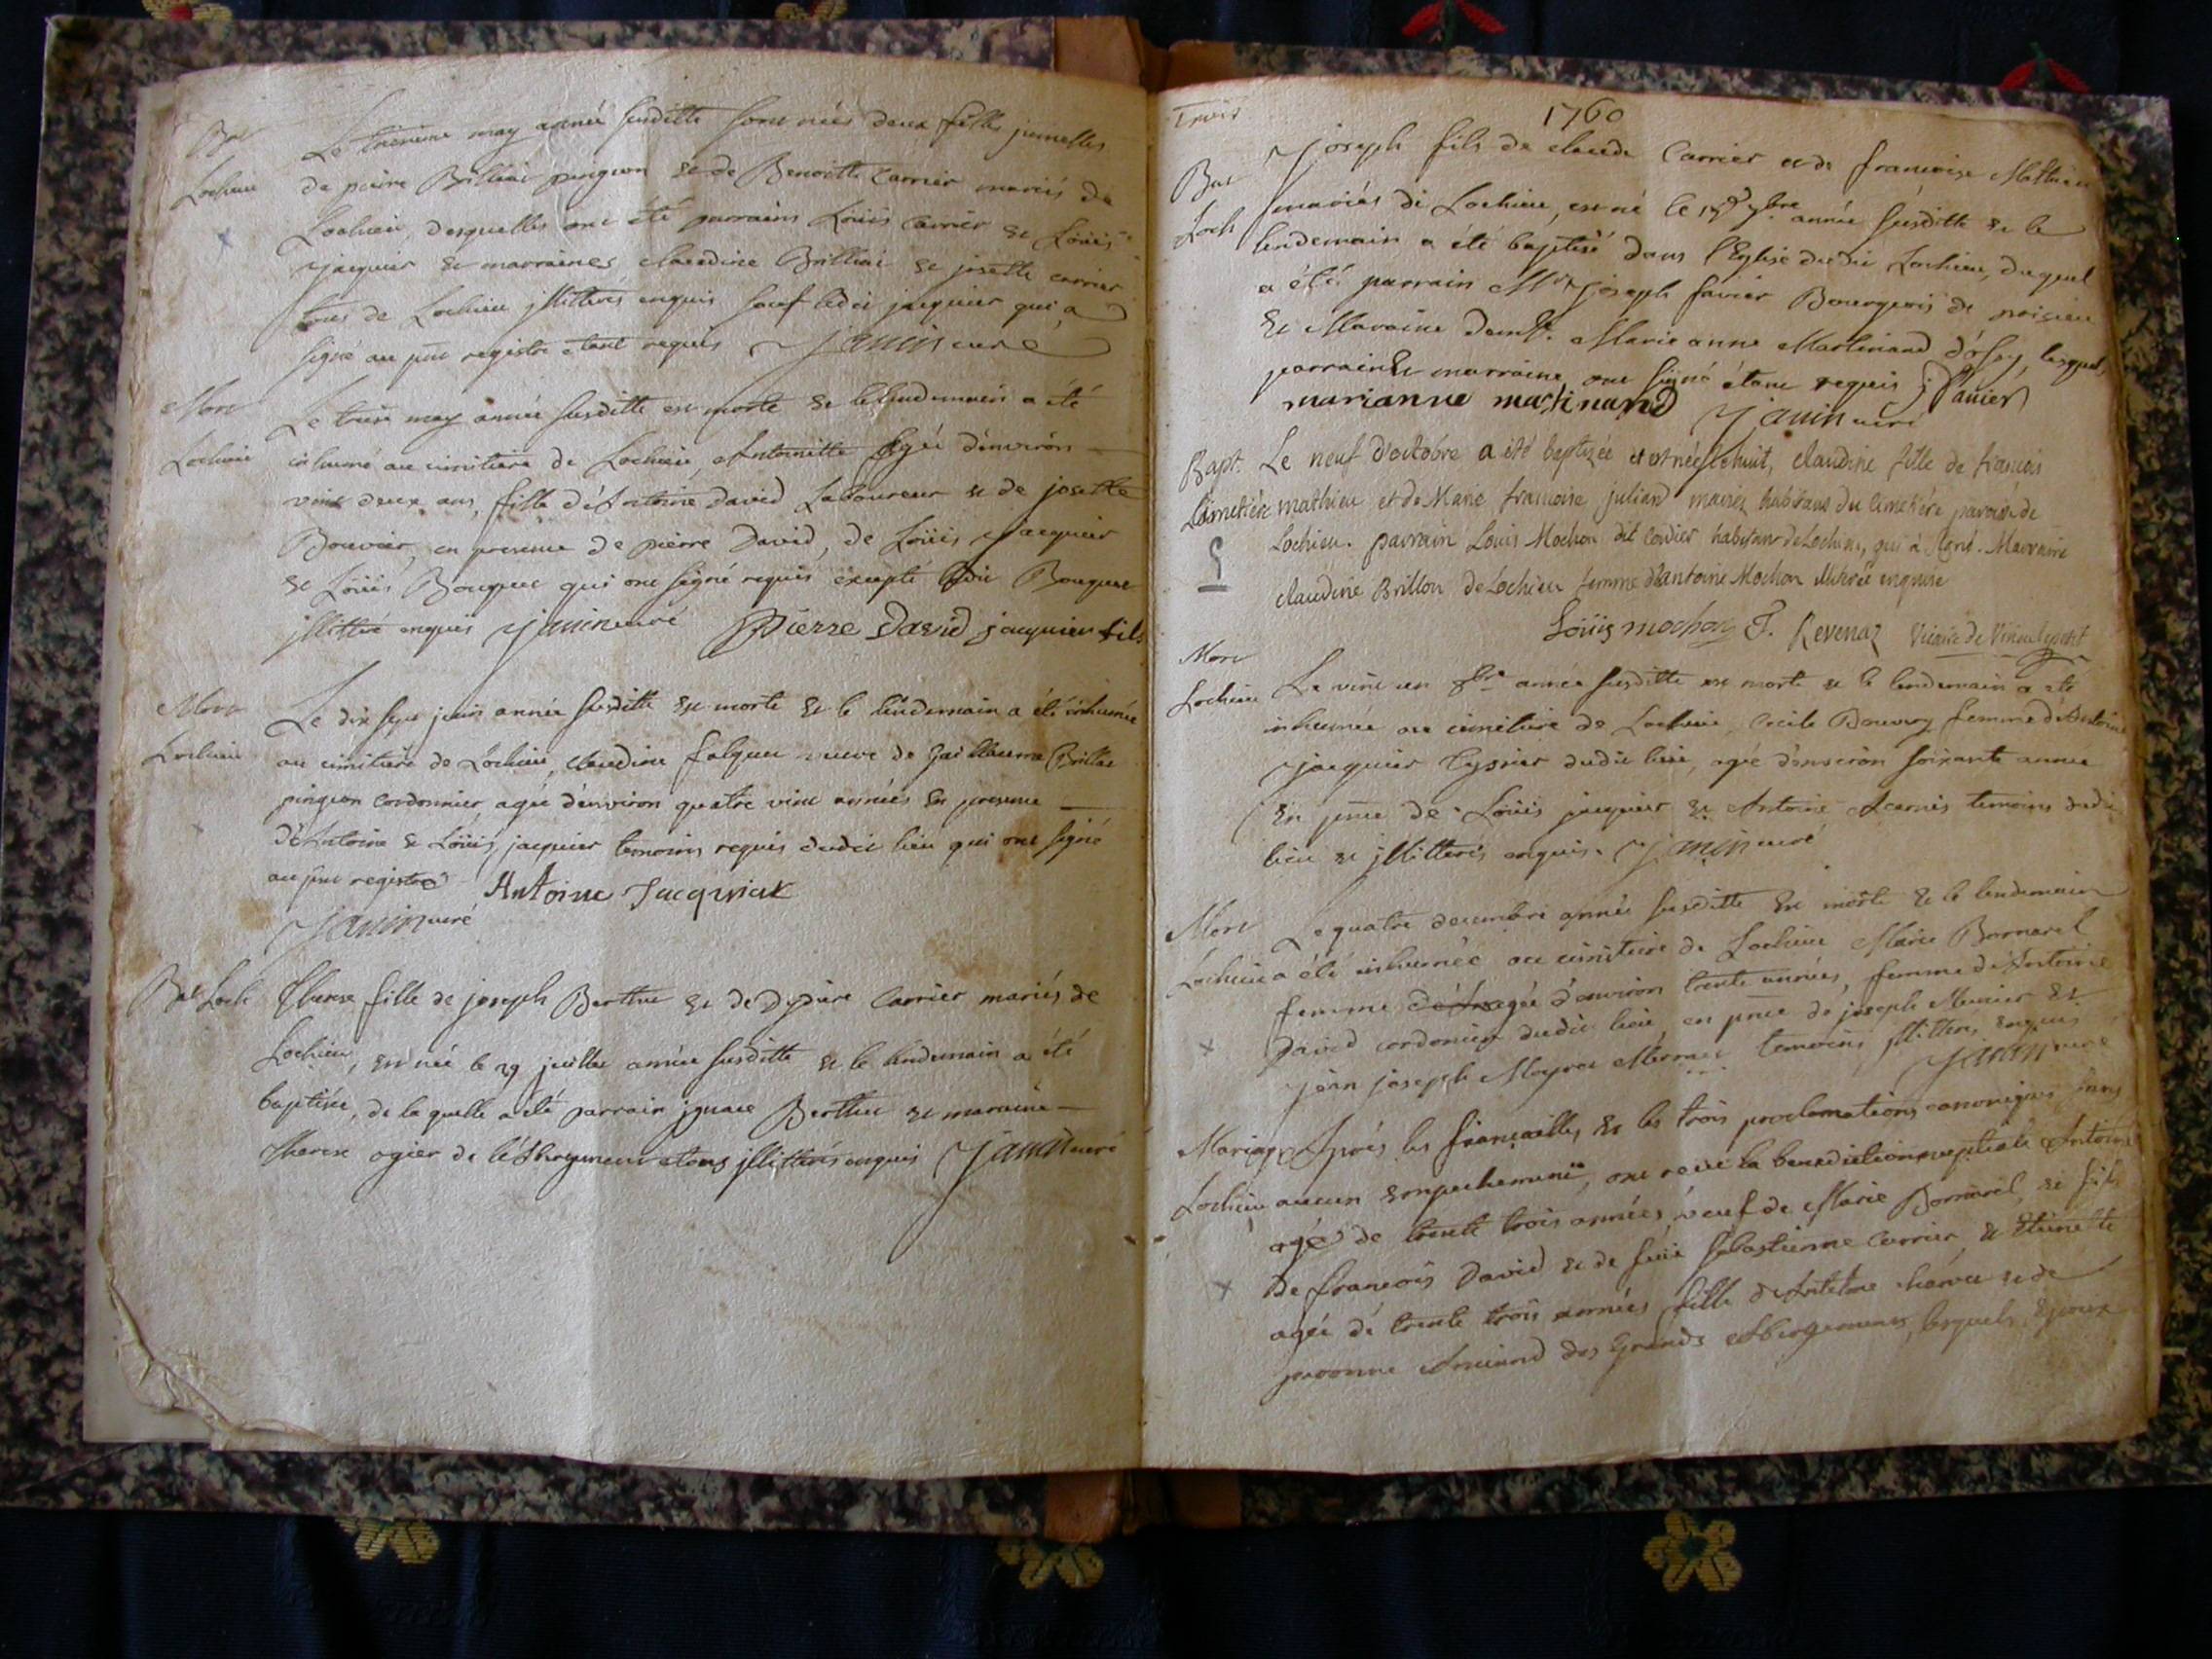 Bat
Lochieu
Le troisieme may année susditte sont nées deux filles jumelles
de pierre Billiai pingeon et de Benoitte Carrier mariés de
Lochieu, desquelles ont été parrains Loüis Carrier et Loüis
jacquier et marraines claudine Billiai et josette carrier
tous de Lochieu jllitterés enquis sauf ledit jacquier qui a
signé au pnt registre etant requis janin curé
Mort
Lochieu
Le trois may année susditte est morte et le lendemain a été
inhumé au cimitiere de Lochieu Antoinette agée d'environ
vint deux ans, fille d'Antoine David Laboureur et de josette
Bouvier, en presence de pierre David, de Loüis jacquier
et Loüis Bouquet qui ont signé requis excepté ledit Bouquet
jllitteré enquis janin curé Pierre David jacquier fils
Mort
Lochieu
Le dix sept juin année susditte est morte et le lendemain a été inhumée
au cimitiere de Lochieu, claudine falquet veuve de guillaume Billiai
pingeon cordonnier, agée d'environ quatre vint années en presence
d'Antoine et Loüis jacquier temoins requis dudit lieu qui ont signé
au pnt registre Antoine Jacquier
janin curé
Bat Loch
Therese fille de joseph Berthet et de Dydiere Carrier mariés de
Lochieu, est née le 29 juillet année susditte et le lendemain a été
baptisée, de la quelle a été parrain ignace Berthet et maraine
therese ogier de l'Abergement et tous jllitterés enquis janin curé
Trois
1760
Bat
Loch
joseph fils de claude Carrier et de francoise Mathieu
mariés de Lochieu, est né le 15e 7bre année susditte et le
lendemain a été baptisé dans l'Eglise dudit Lochieu, duquel
a été parrain Mr joseph favier Bourgeois de
et Maraine demlle. Marie anne Martinand d'ossy, lesquels
parrain et marraine ont signé étant requis j: favier
marianne martinand janin curé
Bapt.
Cimetière
Le neuf d'octobre a été baptizée et est née le huit, claudine fille de francois
mathieu et de Marie francoise juliand mariez habitans du Cimetière paroisse de
Lochieu. parrain Louis Mochon dit Cordier habitant de Lochieu, qui à signé. Marraine
claudine Brillon de Lochieu femme d'antoine Mochon illitérée enquise
Loüis mochon F. Revenaz vicaire de
Mort
Lochieu
Le vint un 8bre année susditte est morte et le lendemain a été
inhumée au cimitiere de Lochieu cecile Bouvoy femme d'Antoine
jacquier Tysser dudit lieu, agée d'environ soixante années
en pnce de Loüis jacquier et Antoine temoins dudit
lieu et jllitterés enquis. janin curé
Mort
Lochieu
Le quatre decembre année susditte est morte et le lendemain
a été inhumée au cimitiere de Lochieu Marie Bornarel
femme agée d'environ trente années, femme d'Antoine
David cordonier dudit lieu, en pnce de joseph Meunier et
jean joseph temoins jllitterés enquis
janin curé
Mariage
Lochieu
Aprés les fiancailles et les trois proclamations canoniques sans
aucun empechement, ont recu la benediction nuptiale Antoine
agé de trente trois années, veuf de Marie Bornarel, et fils
De francois David et de feüe sebastienne Carrier, et
agée de trente trois années fille d'Antelme et de
des Grands Abergements, lesquels Epoux